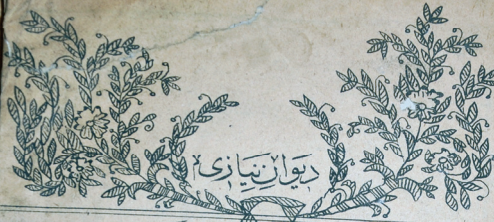 ديوانِ نيازى